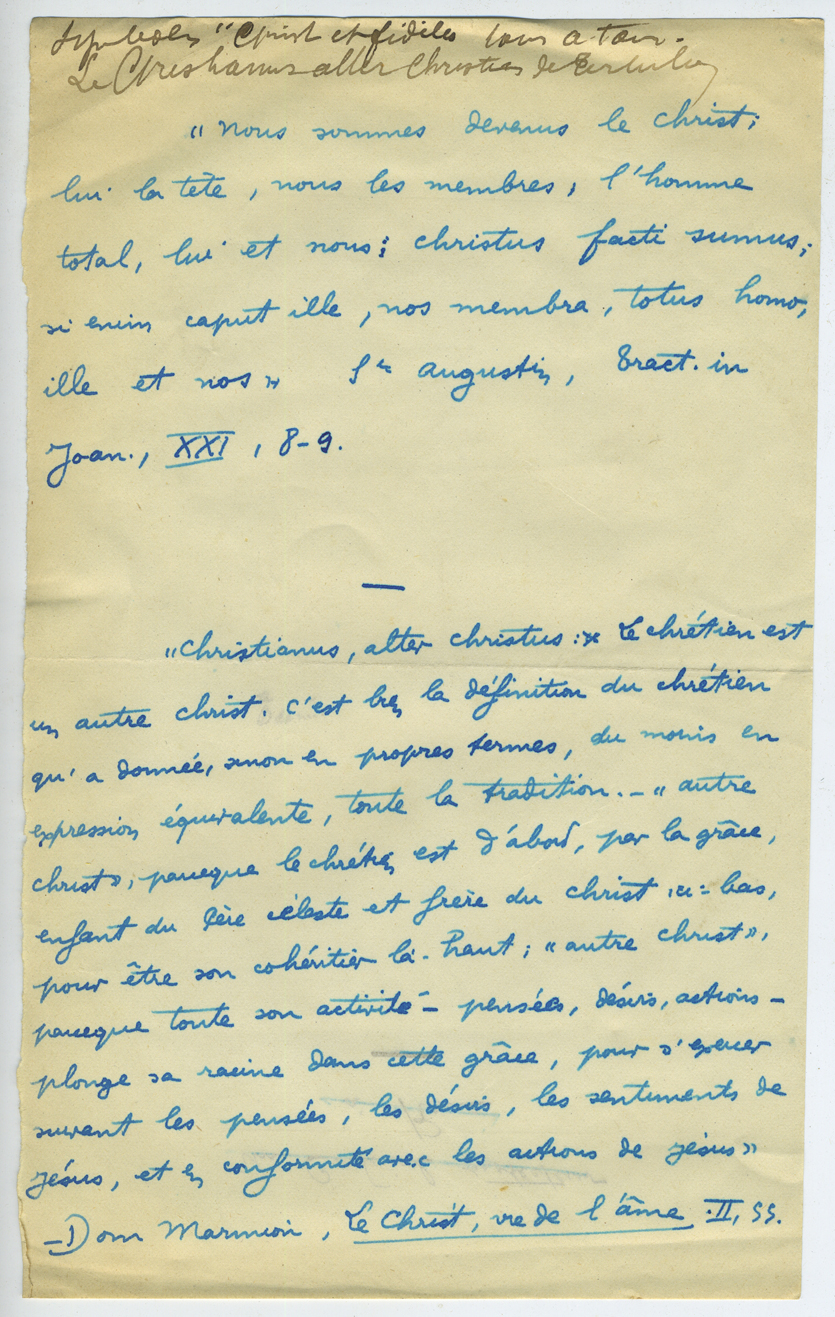 Symboles "Christ et fidèles
Le Christianus alter Christus de Tertullien
« Nous sommes devenus le Christ;
lui la tête, nous les membres; l'homme
total, lui et nous; christus facti sumus;
si enim caput ille, nos membra, totus homo,
ille et nos » St augustin, Tract. in
Joan., XXI, 8-9.
—
« Christianus, alter christus: » Le chrétien est
un autre christ. C'est bien la définition du chrétien
qu'a donnée, sinon en propres termes, du moins en
expression équivalente, toute la tradition. – « autre
christ », parceque le chrétien est d'abord, par la grâce,
enfant du Père céleste et frère du christ ici-bas,
pour être son cohéritier là-haut; « autre christ »,
parceque toute son activité – pensées, désirs, actions –
plonge sa racine dans cette grâce, pour s'exercer
suivant les pensées, les désirs, les sentiments de
Jésus, et en conformité avec les actions de Jésus »
– Dom Marmion, Le Christ, vie de l'âme. II, §§.